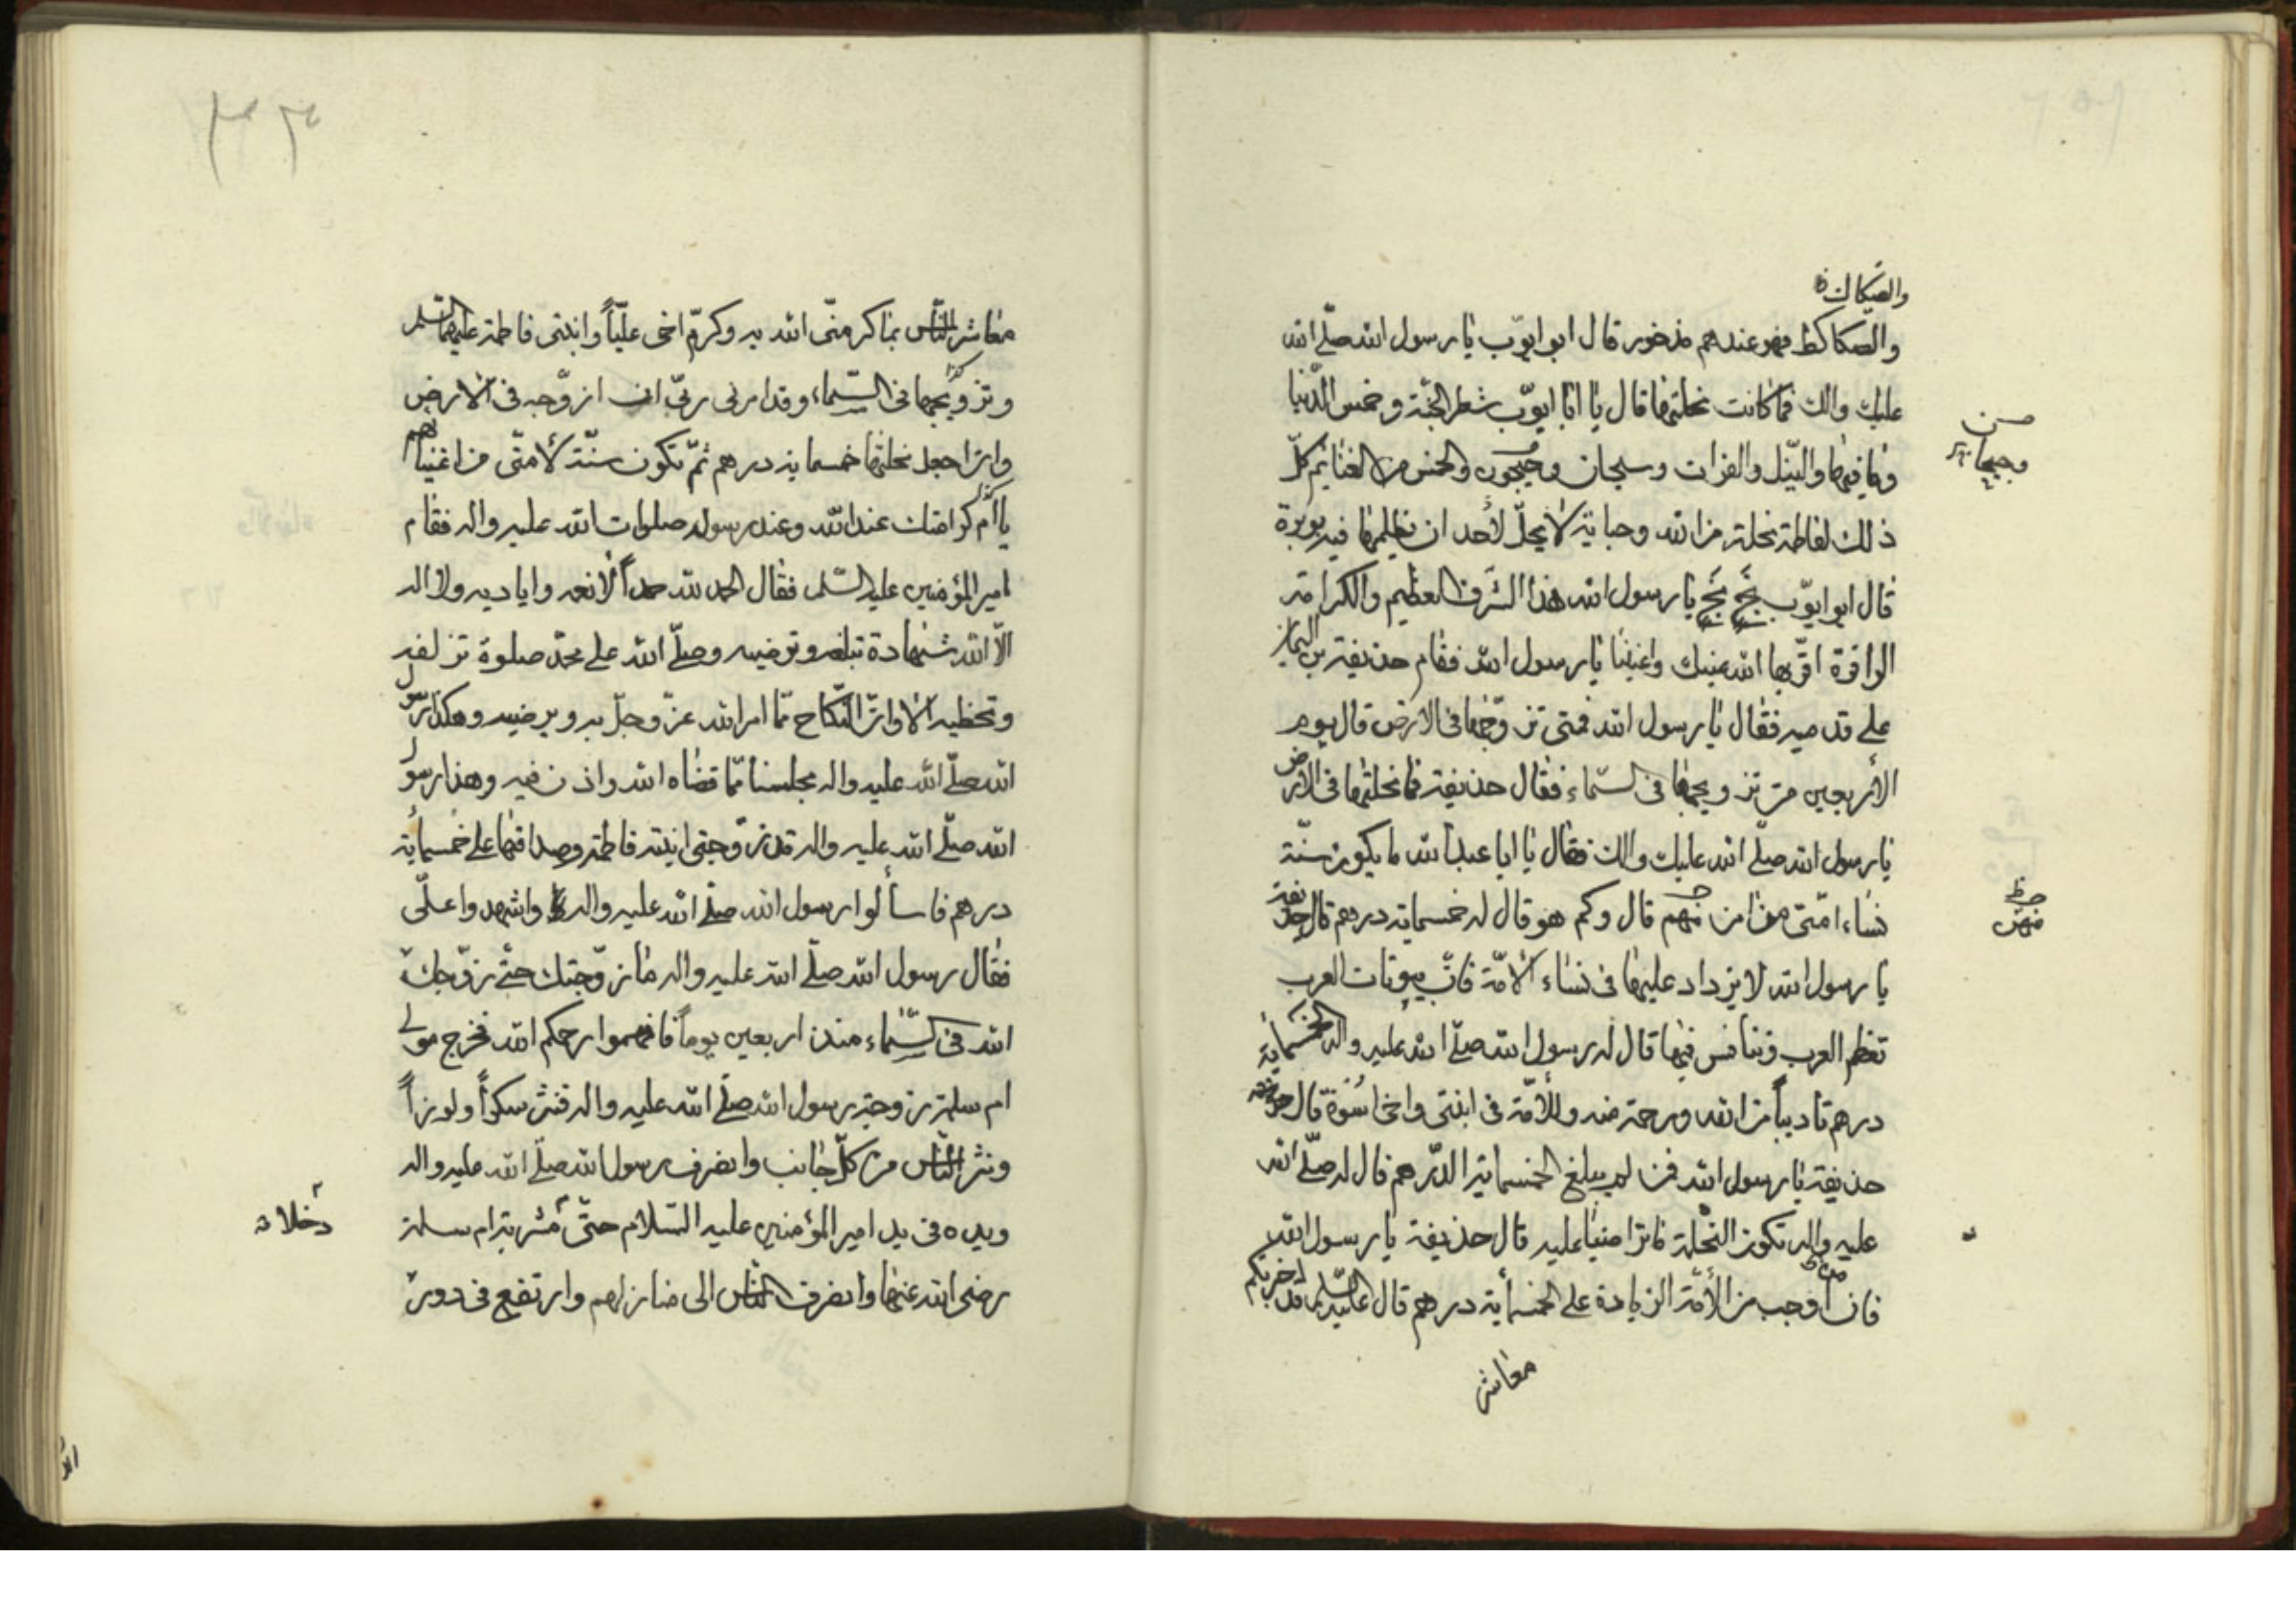 والصكاك
والصكاك فهو عندهم مذخور قال ابو ايوب يا رسول الله صلى الله
عليك والك فما كانت نحلتها قال يا ابا ايوب شطر الجنة وخمس الدنيا
وما فيها والنيل والفرات وسيحان وجيحون والخمس من الغنايم كل
وجيحان
ذلك لفاطمة نحلة من الله وحباية لا يحل لأحد ان يظلمها فيه بوبرة
قال ابو ايوب بخ بخ يا رسول الله هذا الشرف العظيم والكرامة
الوافرة اقر بها الله عينيك واعيننا يا رسول الله فقام حذيفة بن اليمان
على قدميه فقال يا رسول الله فمتى تزوجها في الارض قال يوم
الأربعين من تزويجها في السماء فقال حذيفة فما نحلتها في الارض
يا رسول الله صلى الله عليك والك فقال يا ابا عبد الله ما يكون سنة
نساء امتي من امن منهم قال وكم هو قال له خمسماية درهم قال حذيفة
منهن
يا رسول الله لا يزداد عليها في نساء الامة فان بيوتات العرب
تعظم العرب وتنافس فيها قال له رسول الله صلى الله عليه واله الخمسماية
درهم تاديبا من الله ورحمة منه وللأمة في ابنتي واخي اسوة قال
حذيفة يا رسول الله فمن لم يبلغ الخمسماية الدرهم قال له صلى الله
عليه واله تكون النحلة ما تراضيا عليه قال حذيفة يا رسول الله
فان اوجب من الأمة الزيادة على الخمسماية درهم قال عليه السلم قد اخبرتكم
معاشر
٢٣
معاشر الناس بما كرمني الله به وكرم اخي عليا وابنتي فاطمة عليهما السلم
وتزويجهما في السماء وقد امرني ربي ان ازوجه في الارض
وان اجعل نحلتها خمسماية درهم ثم تكون سنة لأمتي من اغنيائهم
امير المؤمنين عليه السلم فقال الحمد لله حمدا لأنعمه واياديه ولا اله
الا الله شهادة تبلغه وترضيه وصلى الله على محمد صلوة تزلفه
وتحظيه الا وان النكاح مما امر الله عز وجل به ويرضيه وهكذا رسول
الله صلى الله عليه واله مجلسنا مما قضاه الله واذن فيه وهذا رسول
الله صلى الله عليه واله قد زوجني ابنته فاطمة وصداقها على خمسمائة
درهم فاسألوا رسول الله صلى الله عليه واله واشهدوا على
فقال رسول الله صلى الله عليه واله ما زوجتك حتى زوجك
الله في السماء منذ اربعين يوما فافهموا رحمكم الله فخرج مولى
ام سلمة زوجة رسول الله صلى الله عليه واله فنثر سكرا ولوزا
ونثر الناس من كل جانب وانصرف رسول الله صلى الله عليه واله
ويده في يد امير المؤمنين عليه السلام حتى مشربة ام سلمة
دخلا
رضى الله عنها وانصرف الناس الى منازلهم وارتفع في دور